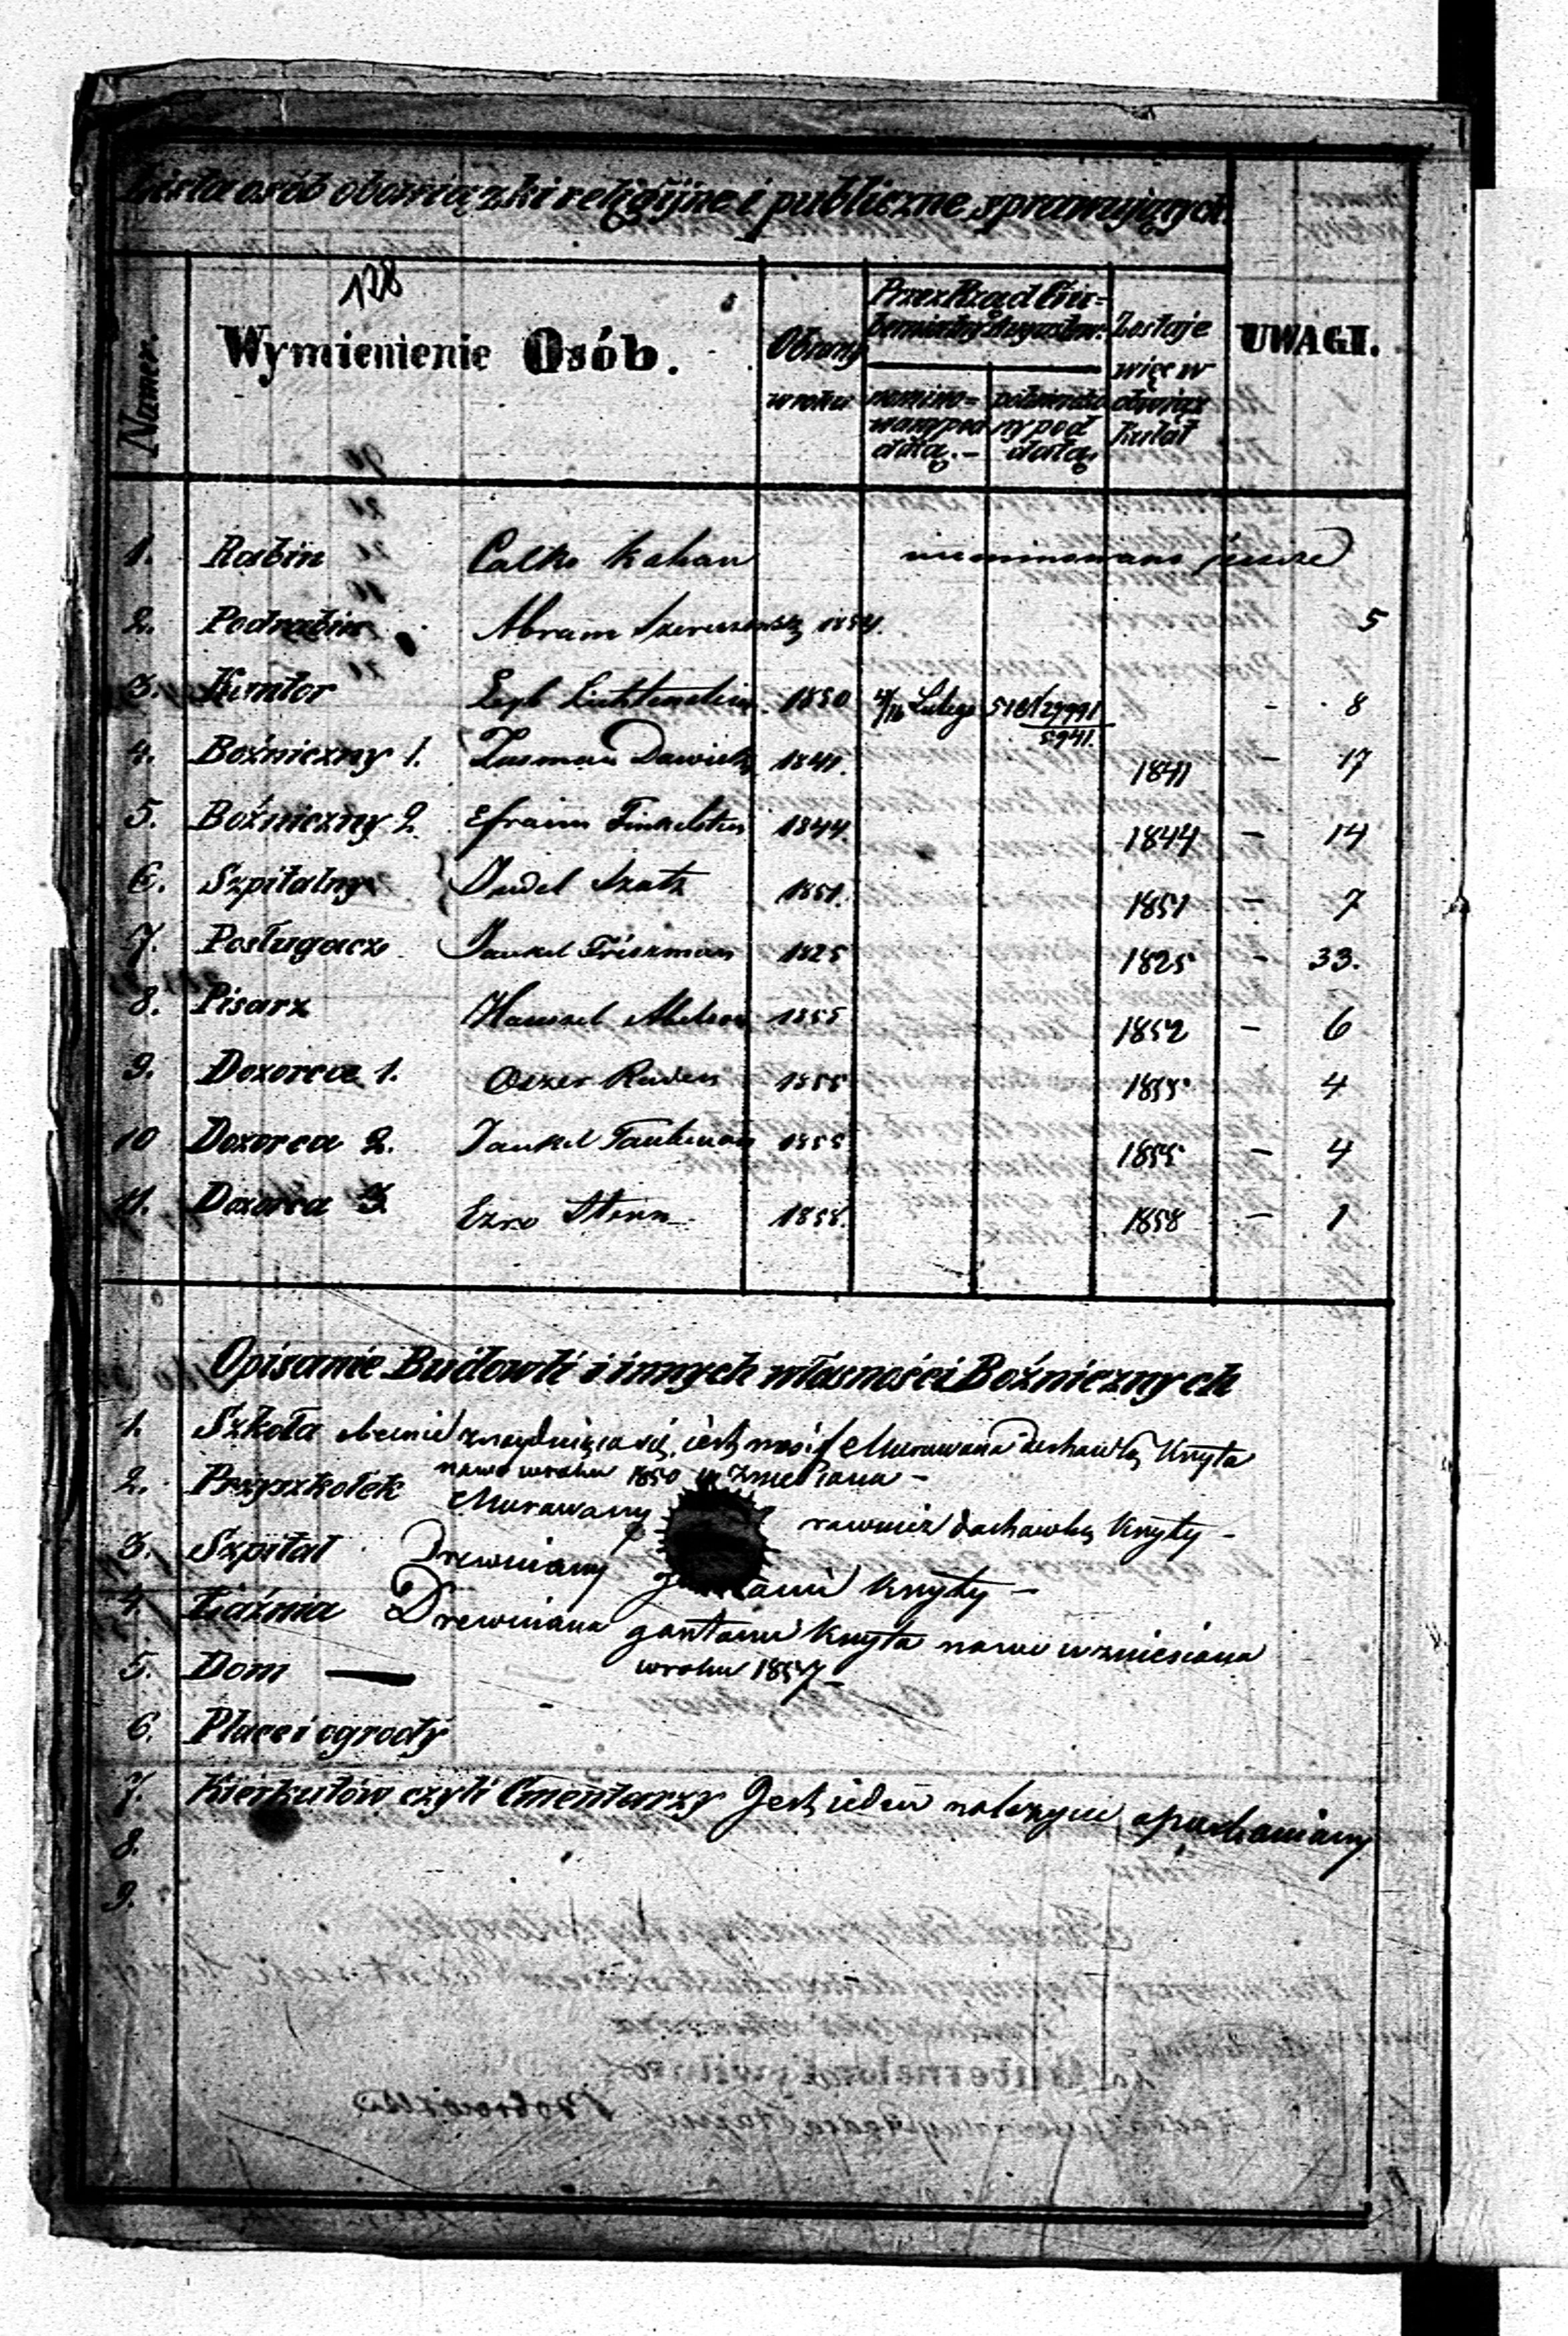 Lista osób obowiązki religijne i publiczne sprawujących
128
Numer.
Wymienienie Osób.
Obrany w roku
Przez Rząd Gubernialny
nominowany pod datą.
potwierdzony pod datą
Zostaje więc w obowiąz kulat
UWAGI.
1. Rabin Calko Kahan nieminowano jeszcze
2. Podrabin Abram 1854. 5
3. Kantor 1850 4/16 Lutego 5181/27991 - 8
4. Boźniczny 1. Zusman Dawid 1841. 1841 - 17
5. Boźniczny 2. Efraim Finkelsten 1844. 1844 - 14
6. Szpitalny Dawid Szatz 1851. 1851 - 7
7. Posługacz Jankel Friszman 1825 1825 - 33.
8. Pisarz 1855 1852 - 6
9. Dozorca 1. Oszer 1855 1855 4
10 Dozorca 2. Jankel 1855 1855 - 4
11. Dozorca 3. Ezro Stern 1858. 1858 - 1
Opisanie Budowli i innych własności Boźnicznych
1. Szkoła obecnie znajdująca się, jest Murowana dachówką Kryta
nowo w roku 1850 wzniesiana -
2. Przyszkołek Murowany rownież dachowką Kryty -
3. Szpital Drewniany Kryty -
4. Łaźnia Drewniana gontami Kryta nowo wzniesiana
w roku 1857 -
5. Dom —
6. Place i ogrody -
7. Kierkutów czyli Cmentarzy Jest jeden należycie oparkaniany
8.
9.